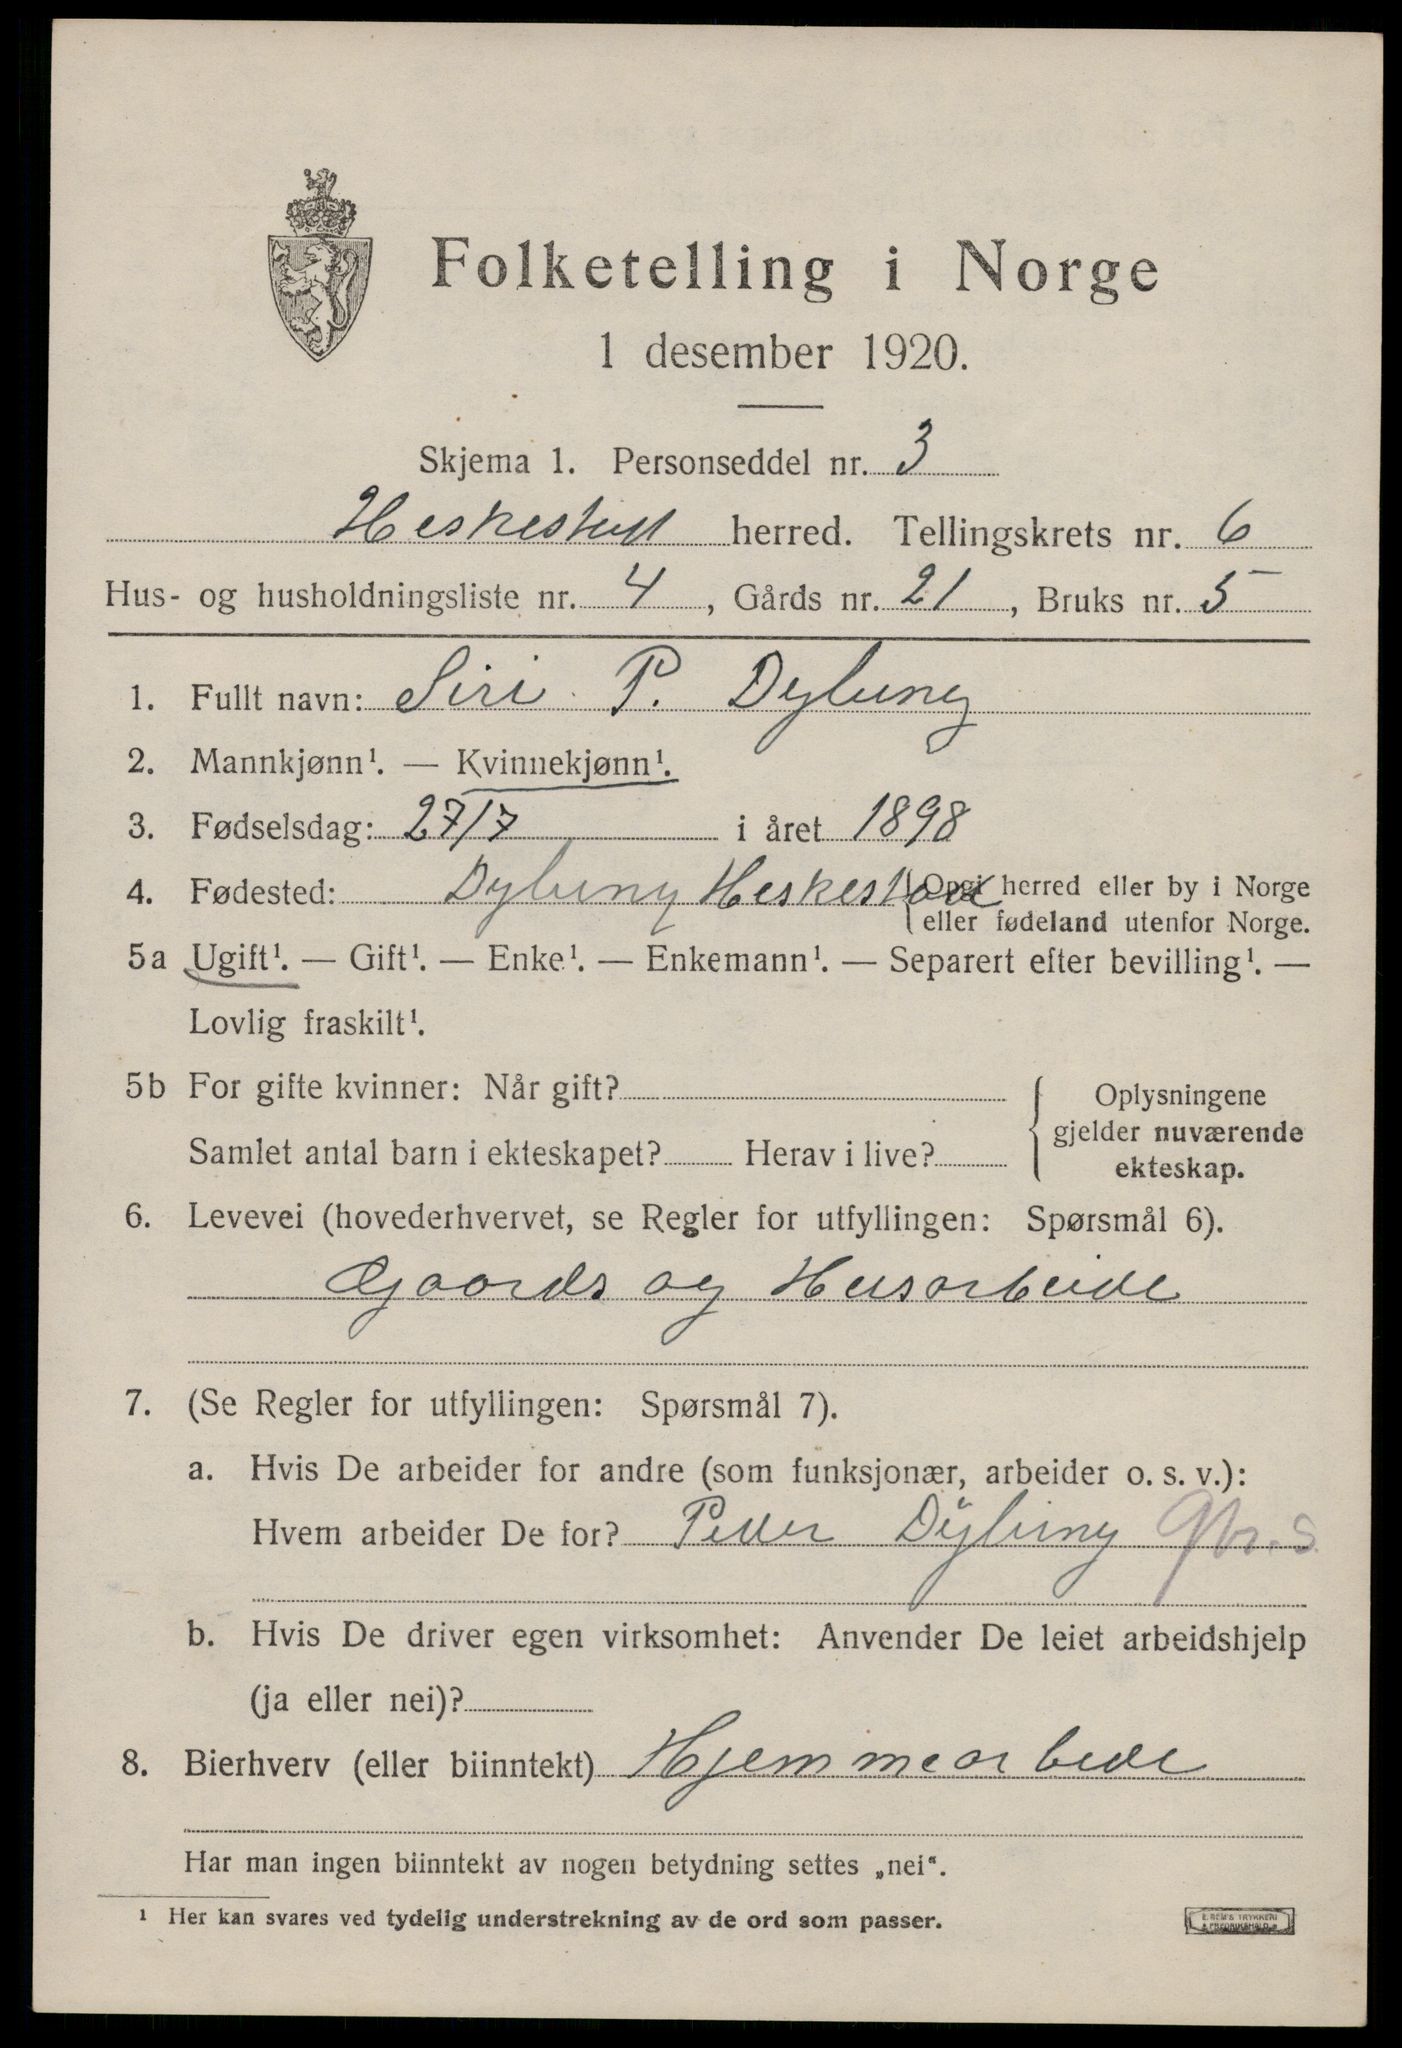 Folketelling i Norge
1 desember 1920.
Skjema 1. Personseddel nr. 3
Heskestad herred. Tellingskrets nr. 6
Hus- og husholdningsliste nr. 4, Gårds nr. 21, Bruks nr. 5
1. Fullt navn: Siri P. Dybing
2. Mannkjønn¹. — Kvinnekjønn¹.
3. Fødselsdag: 27/7 i året 1898
4. Fødested: Dybing Heskestad (Opgi herred eller by i Norge
eller fødeland utenfor Norge.
5a Ugift¹. — Gift¹. — Enke¹. — Enkemann¹. — Separert efter bevilling¹. —
Lovlig fraskilt¹.
5b For gifte kvinner: Når gift?
Samlet antal barn i ekteskapet? Herav i live?
Oplysningene
gjelder nuværende
ekteskap.
6. Levevei (hovederhvervet, se Regler for utfyllingen: Spørsmål 6).
Gaards og Husarbeide
7. (Se Regler for utfyllingen: Spørsmål 7).
a. Hvis De arbeider for andre (som funksjonær, arbeider o. s. v.):
Hvem arbeider De for? Peder Dybing gbr. S.
b. Hvis De driver egen virksomhet: Anvender De leiet arbeidshjelp
(ja eller nei)?
8. Bierhverv (eller biinntekt) Hjemmearbeide
Har man ingen biinntekt av nogen betydning settes „nei“.
¹ Her kan svares ved tydelig understrekning av de ord som passer.
E. SEM'S TRYKKERI
FREDRIKSHALD